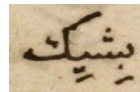 بِشِيك